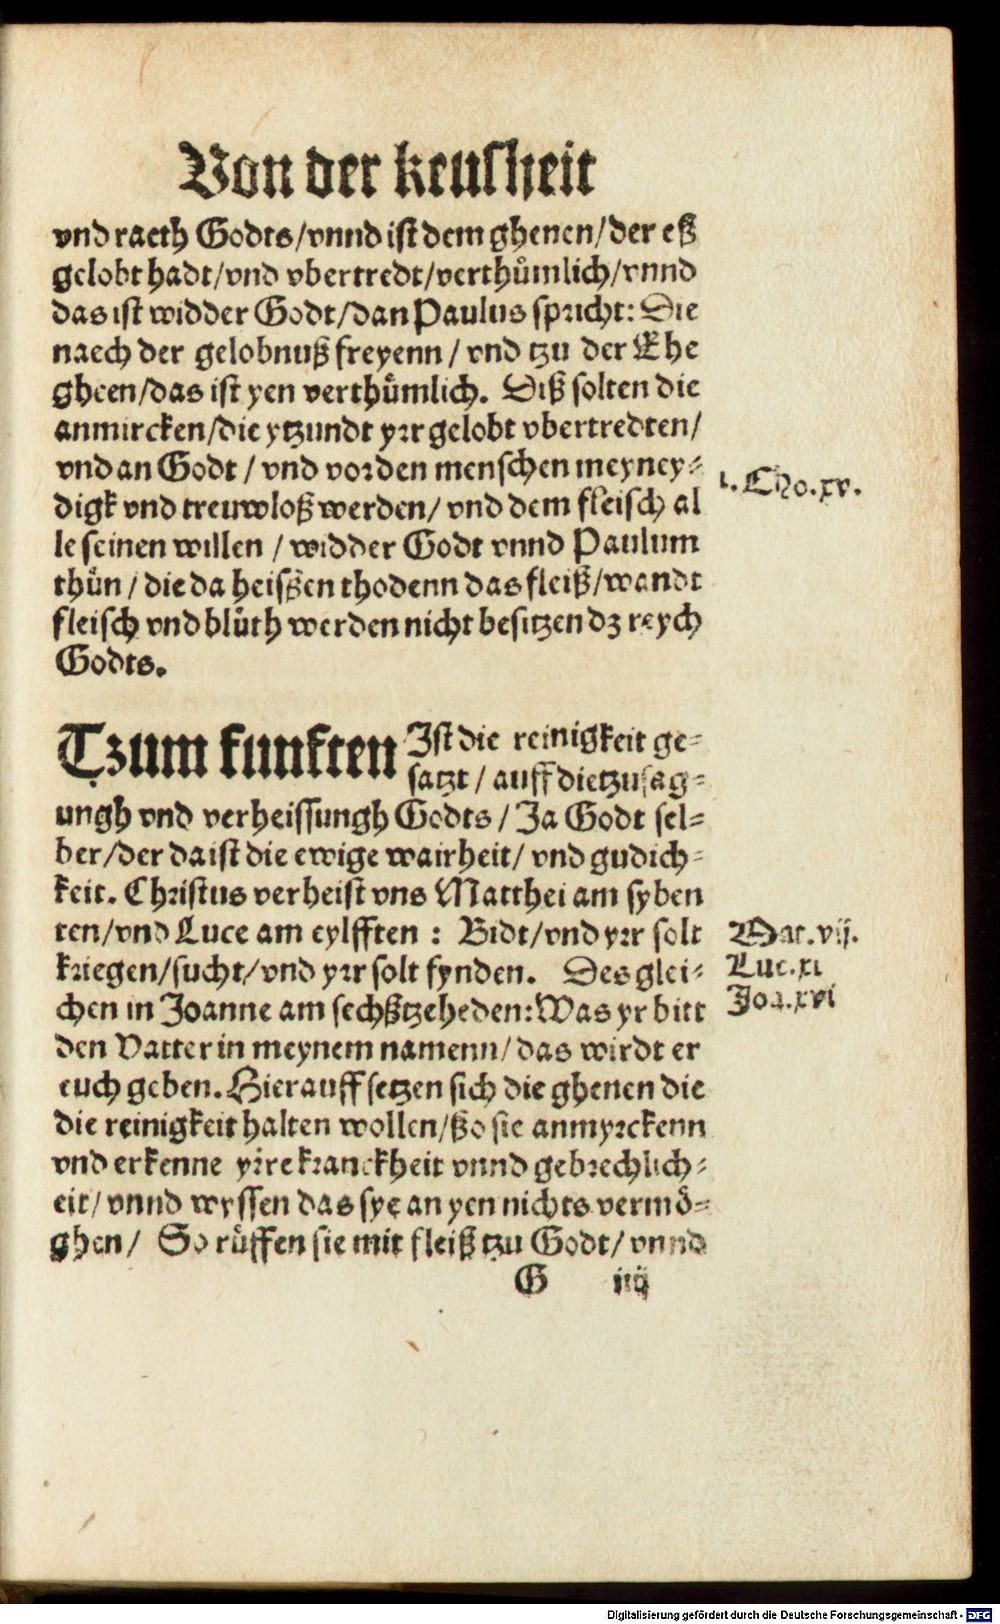 Von der keusheit
vnd raeth Godts/vnnd ist dem ghenen/der eß
gelobt hadt/vnd vbertredt/verthůmlich/vnnd
das ist widder Godt/dan Paulus spricht: Die
naech der gelobnuß freyenn/vnd tzu der Ehe
gheen/das ist yen verthůmlich. Diß solten die
anmircken/die ytzundt yrr gelobt vbertredten/
vnd an Godt/vnd vor den menschen meyney-
digk vnd treuwloß werden/vnd dem fleisch al
le seinen willen/widder Godt vnnd Paulum
thůn/die da heissen thodenn das fleiß/wandt
fleisch vnd blůth werden nicht besitzen dz reych
Godts.
i. Cho. xv.
Tzum funften Ist die reinigkeit ge-
satzt/auff die tzusag-
ungh vnd verheissungh Godts/Ja Godt sel-
ber/der da ist die ewige wairheit/vnd gudich-
keit. Christus verheist vns Matthei am syben
ten/vnd Luce am eylfften: Bidt/vnd yrr solt
kriegen/sucht/vnd yrr solt fynden. Des glei-
chen in Joanne am sechßtzeheden: Was yr bitt
den Vatter in meynem namenn/das wirdt er
euch geben. Hierauff setzen sich die ghenen die
die reinigkeit halten wollen/ßo sie anmyrckenn
vnd erkenne yrre kranckheit vnnd gebrechlich-
eit/vnnd wyssen das sye an yen nichts vermö-
ghen/ So růffen sie mit fleiß tzu Godt/vnnd
Mat. vij.
Luc. xi
Joa. xvi
G iiij
Digitalisierung gefördert durch die Deutsche Forschungsgemeinschaft - DFG